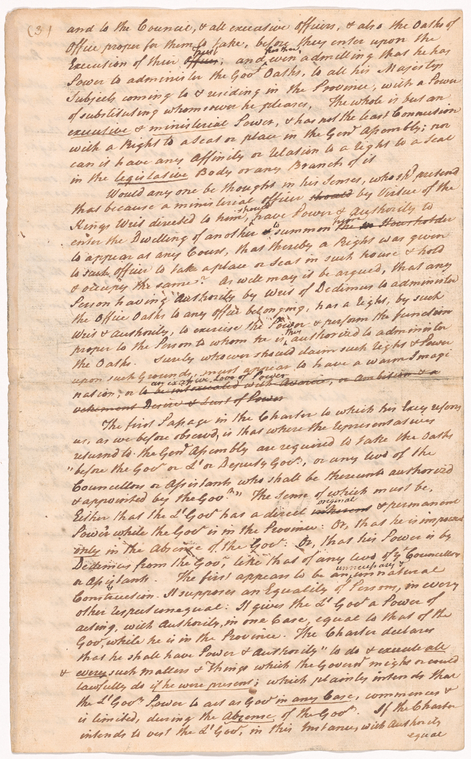 (3) and to the Council, & all executive Officers, & also the Oaths of
Office proper for them to take, before they enter upon the
Execution of their Office; and, even admitting that he has
Power to administer the Govr. Oaths, to all his Majestys
Subjects coming to & residing in the Province, with a Power
of substituting whomsoever he pleases, The whole is but an
executive & ministerial Power, & has not the least Connection
with a Right to a seat or place in the Genl. Assembly; nor
can it have any Affinity or relation to a right to a seat
in the legislative Body or any Branch of it
Would any one be thought in his senses, who shd. pretend
that because a ministerial officer should by Virtue of the
Kings Writ directed to him, have Power & Authority to
enter the Dwelling of another to summon the Householder
to appear at any Court, that thereby a Right was given
to such Officer to take a place or seat in such house & hold
& occupy the same? As well may it be argued, that any
Person having Authority by Writ of Dedimus to administer
the Office Oaths to any office belonging, has a Right, by such
Writ & Authority, to exercise the Power & perform the function
proper to the Person to whom he is authorized to administer
the Oath. Surely whoever should claim such Right & Power
upon such Grounds, must appear to have a warm Imagi
an excessive Love of Power
nation, or to be intoxicated with Avarice, or Ambition & a
vehement Desire & Lust of Power
The first Passage in the Charter to which his Excy refers
us, as we before observed, is that where the representatives
returned to the Genl. Assembly are required to take the Oaths
"before the Govr. or Lt. or Deputy Govr., or any two of the
Councellors or Assistants who shall be thereunto authorized
& appointed by the Govr." The sense of which must be,
original
Either that the Lt. Govr. has a direct inherent & permanent
Power while the Govr. is in the Province: Or, that he is impowered
only in the Absence of the Govr.: Or, that his Power is by
Dedimus from the Govr., like that of any two of ye. Councellors
unnecessary &
or Assistants. The first appears to be an unnatural
Construction. It supposes an Equality of Persons, in every
other respect unequal: It gives the Lt. Govr. a Power of
acting, with Authority, in one Case, equal to that of the
Govr. while he is in the Province. The Charter declares
that he shall have Power & Authority "to do & execute all
& every such matters & Things which the Governr. might or could
lawfully do if he were present; which plainly intends that
the Lt. Govrs. Power to act as Govr. in any Case, commences &
is limited, during the Absence of the Govr. If the Charter
intends to vest the Lt. Govr., in this Instance, with Authority
equal